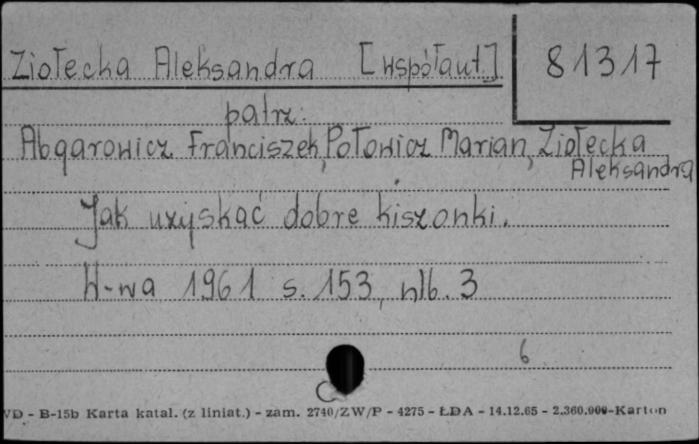 Ziołecka Aleksandra [współaut] 81317
patrz:
Abgarowicz Franciszek, Połowicz Marian, Ziołecka
Aleksandra
Jak uzyskać dobre kiszonki.
W-wa 1961 s. 153, nlb. 3
6
VD - B-15b Karta katal. (z liniat.) - zam. 2740/ZW/P - 4275 - ŁDA - 14.12.65 - 2.360.000-Karton